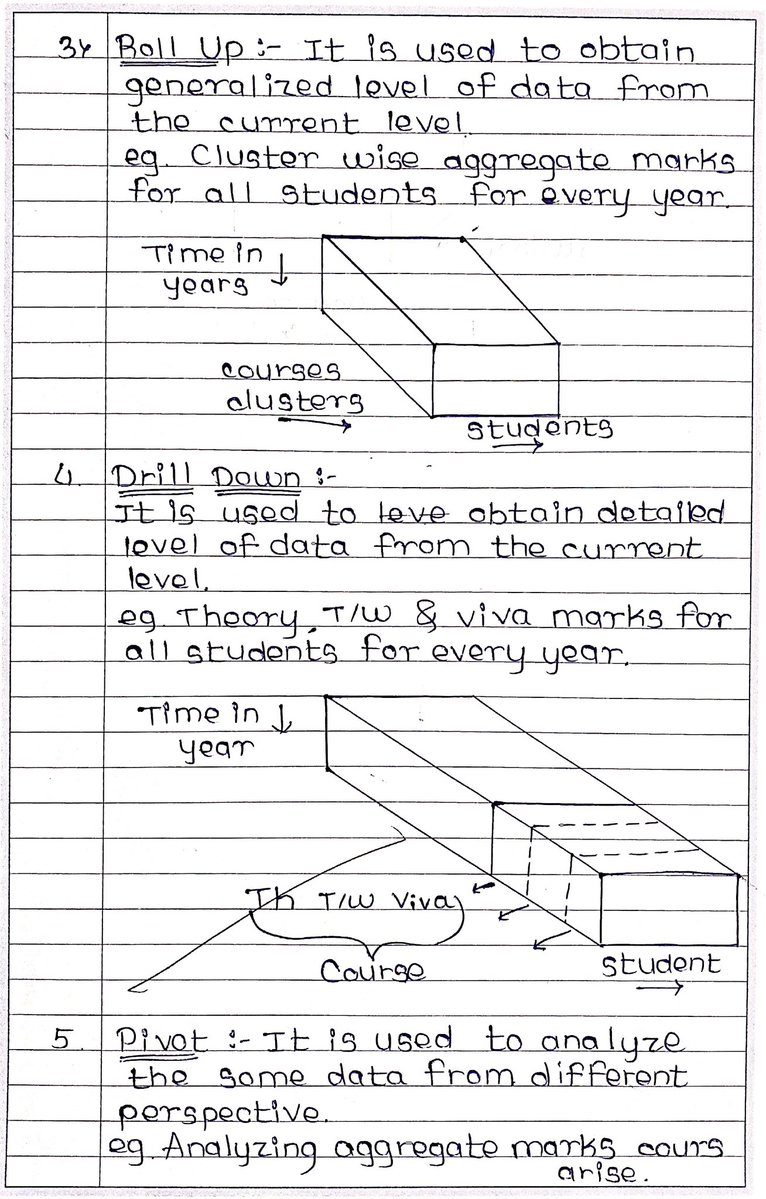 3) Roll Up :- It is used to obtain
generalized level of data from
the current level.
eg. Cluster wise aggregate marks
for all students for every year.
Time in
years ↓
courses
clusters
→
students
→
4. Drill Down :-
It is used to leve obtain detailed
level of data from the current
level.
eg. Theory, T/W & viva marks for
all students for every year.
Time in ↓
year
Th T/W Viva
Course
student
→
5. Pivot :- It is used to analyze
the some data from different
perspective.
eg. Analyzing aggregate marks cours
arise.